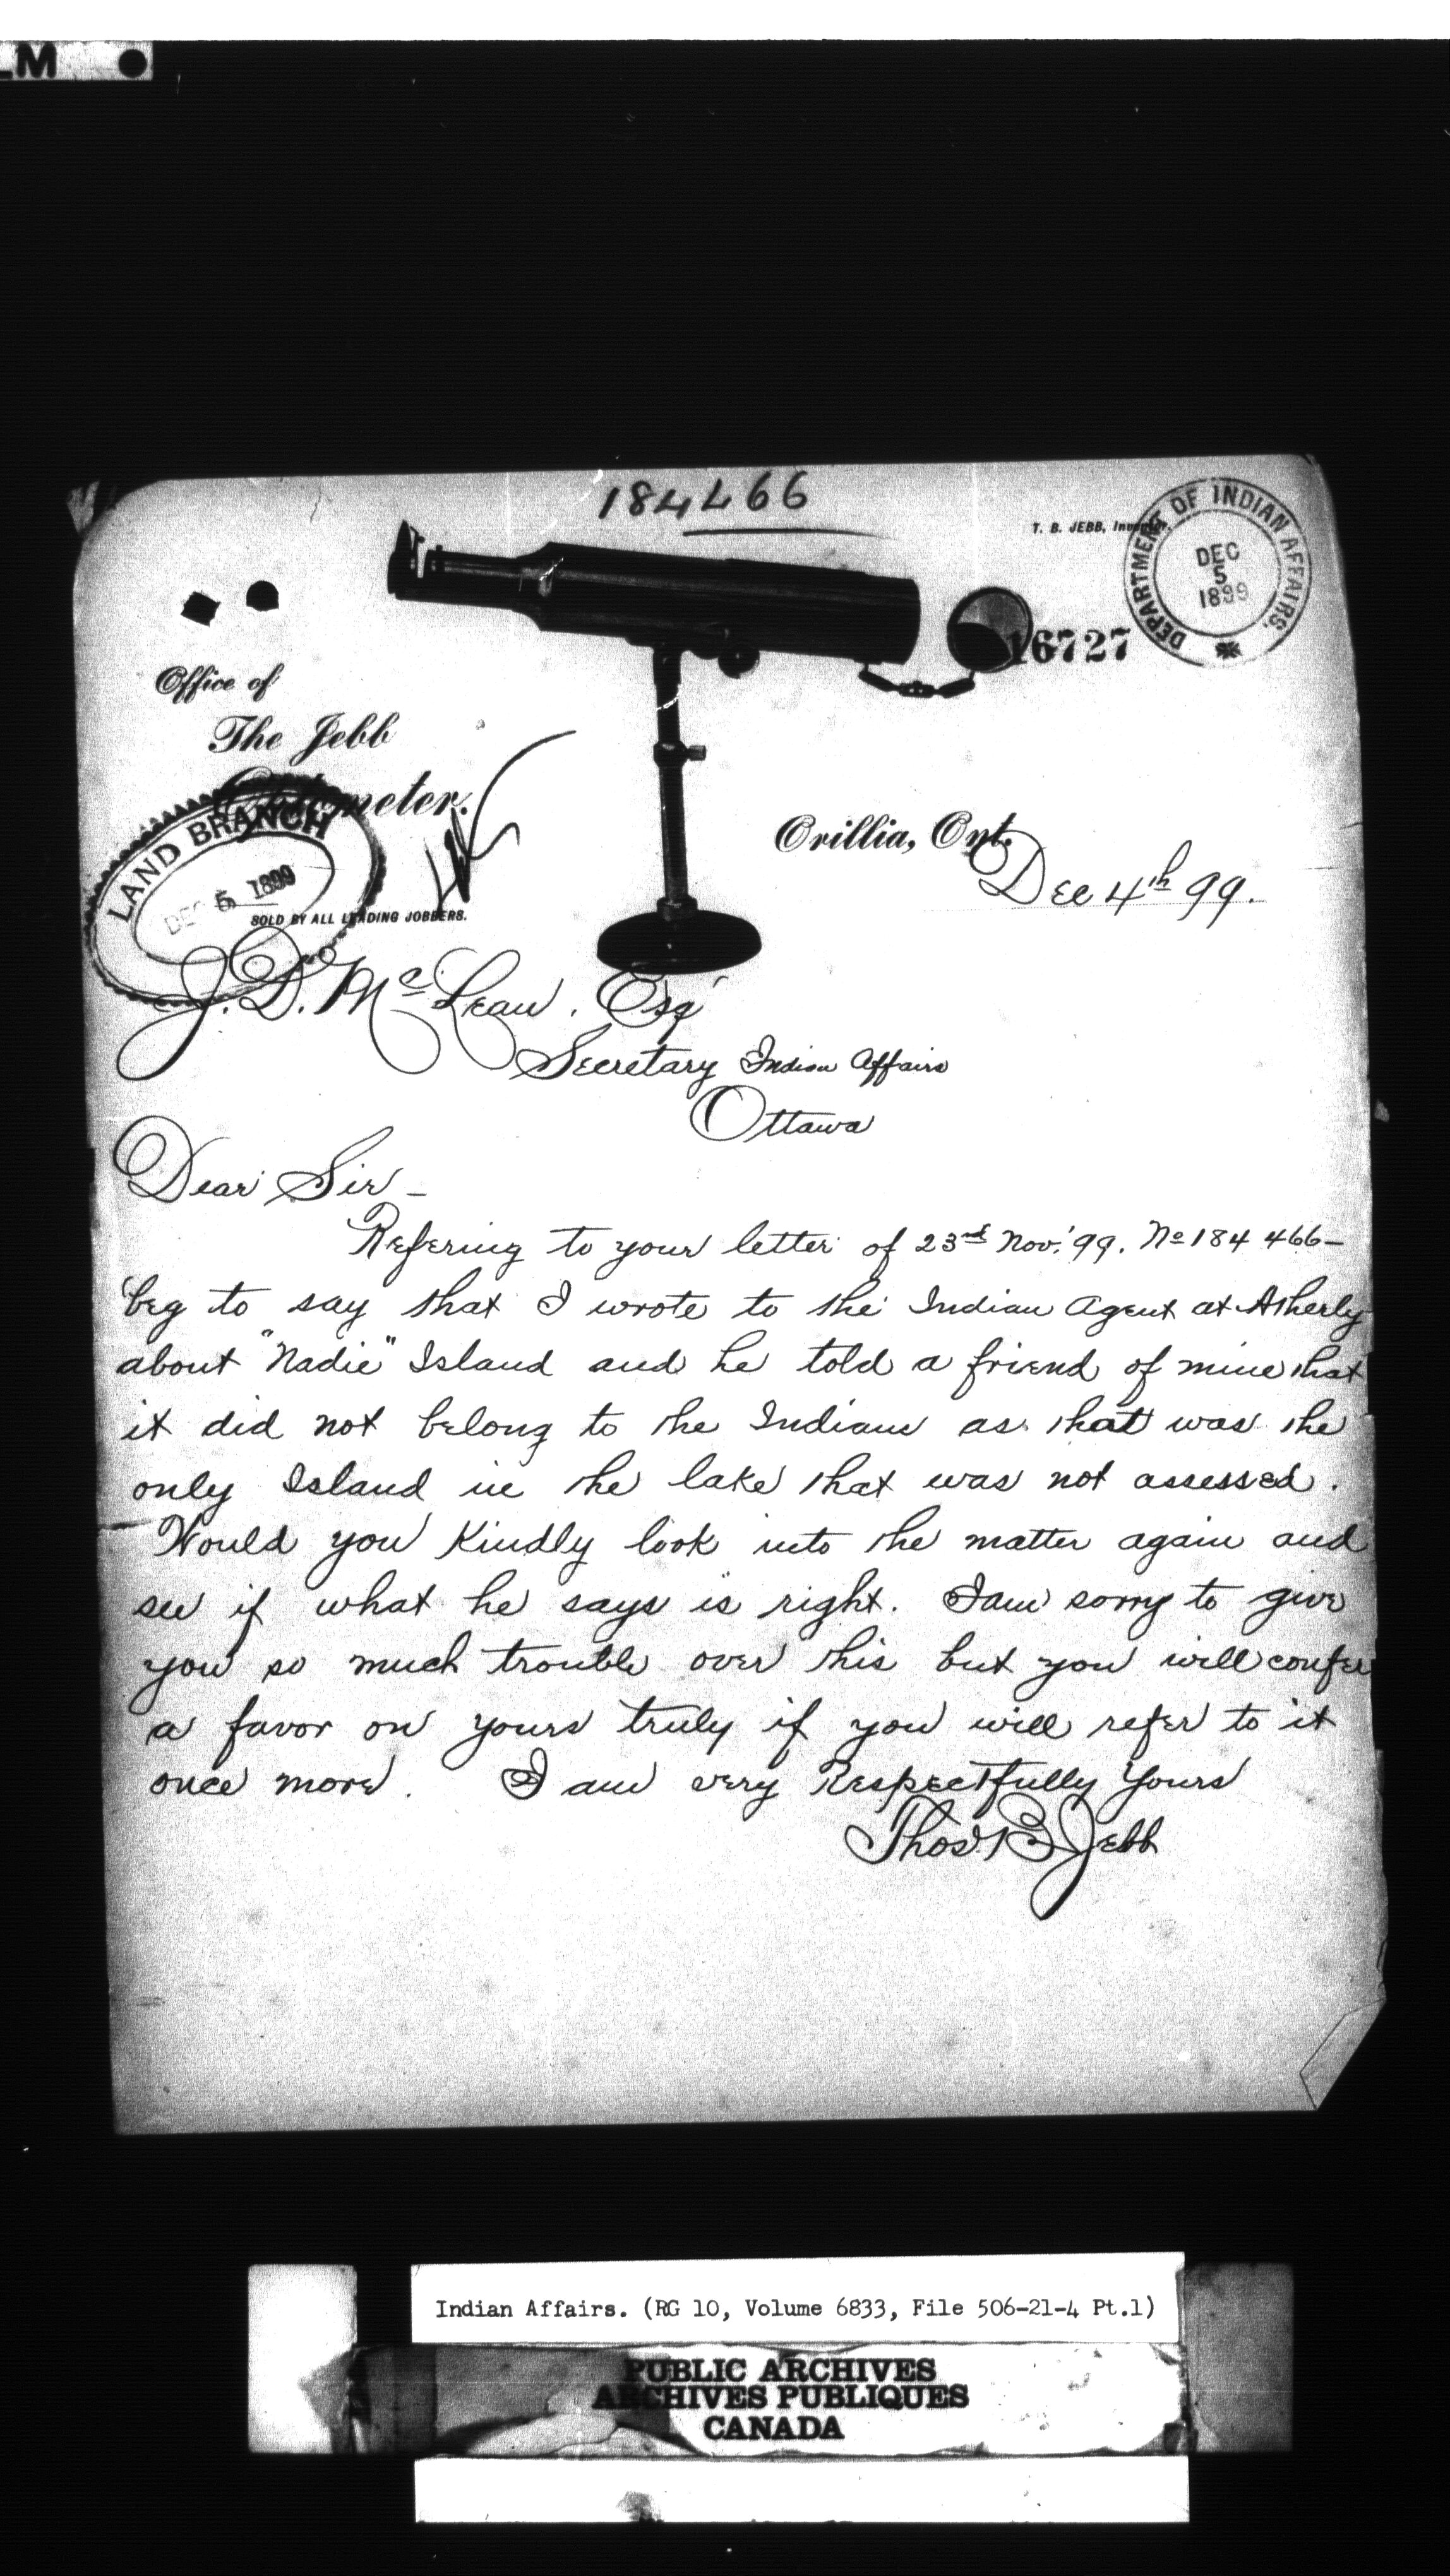 LM
184466
T. B. JEBB, Inventor.
DEPARTMENT OF INDIAN AFFAIRS.
DEC
5
1899
16727
Office of
The Jebb
LAND BRANCH
DEC 5 1899
SOLD BY ALL LEADING JOBBERS.
Orillia, Ont.
Dec 4th 99.
J. D. McLean. Esq
Secretary Indian Affairs
Ottawa
Dear Sir —
Refering to your letter of 23rd Nov. '99. No 184 466 —
beg to say that I wrote to the Indian Agent at Atherly
about "Nadie" Island and he told a friend of mine that
it did not belong to the Indians as that was the
only Island in the lake that was not assessed.
Would you Kindly look into the matter again and
see if what he says is right. I am sorry to give
you so much trouble over this but you will confer
a favor on yours truly if you will refer to it
once more. I am very Respectfully Yours
Thos B Jebb
Indian Affairs. (RG 10, Volume 6833, File 506-21-4 Pt.1)
PUBLIC ARCHIVES
ARCHIVES PUBLIQUES
CANADA